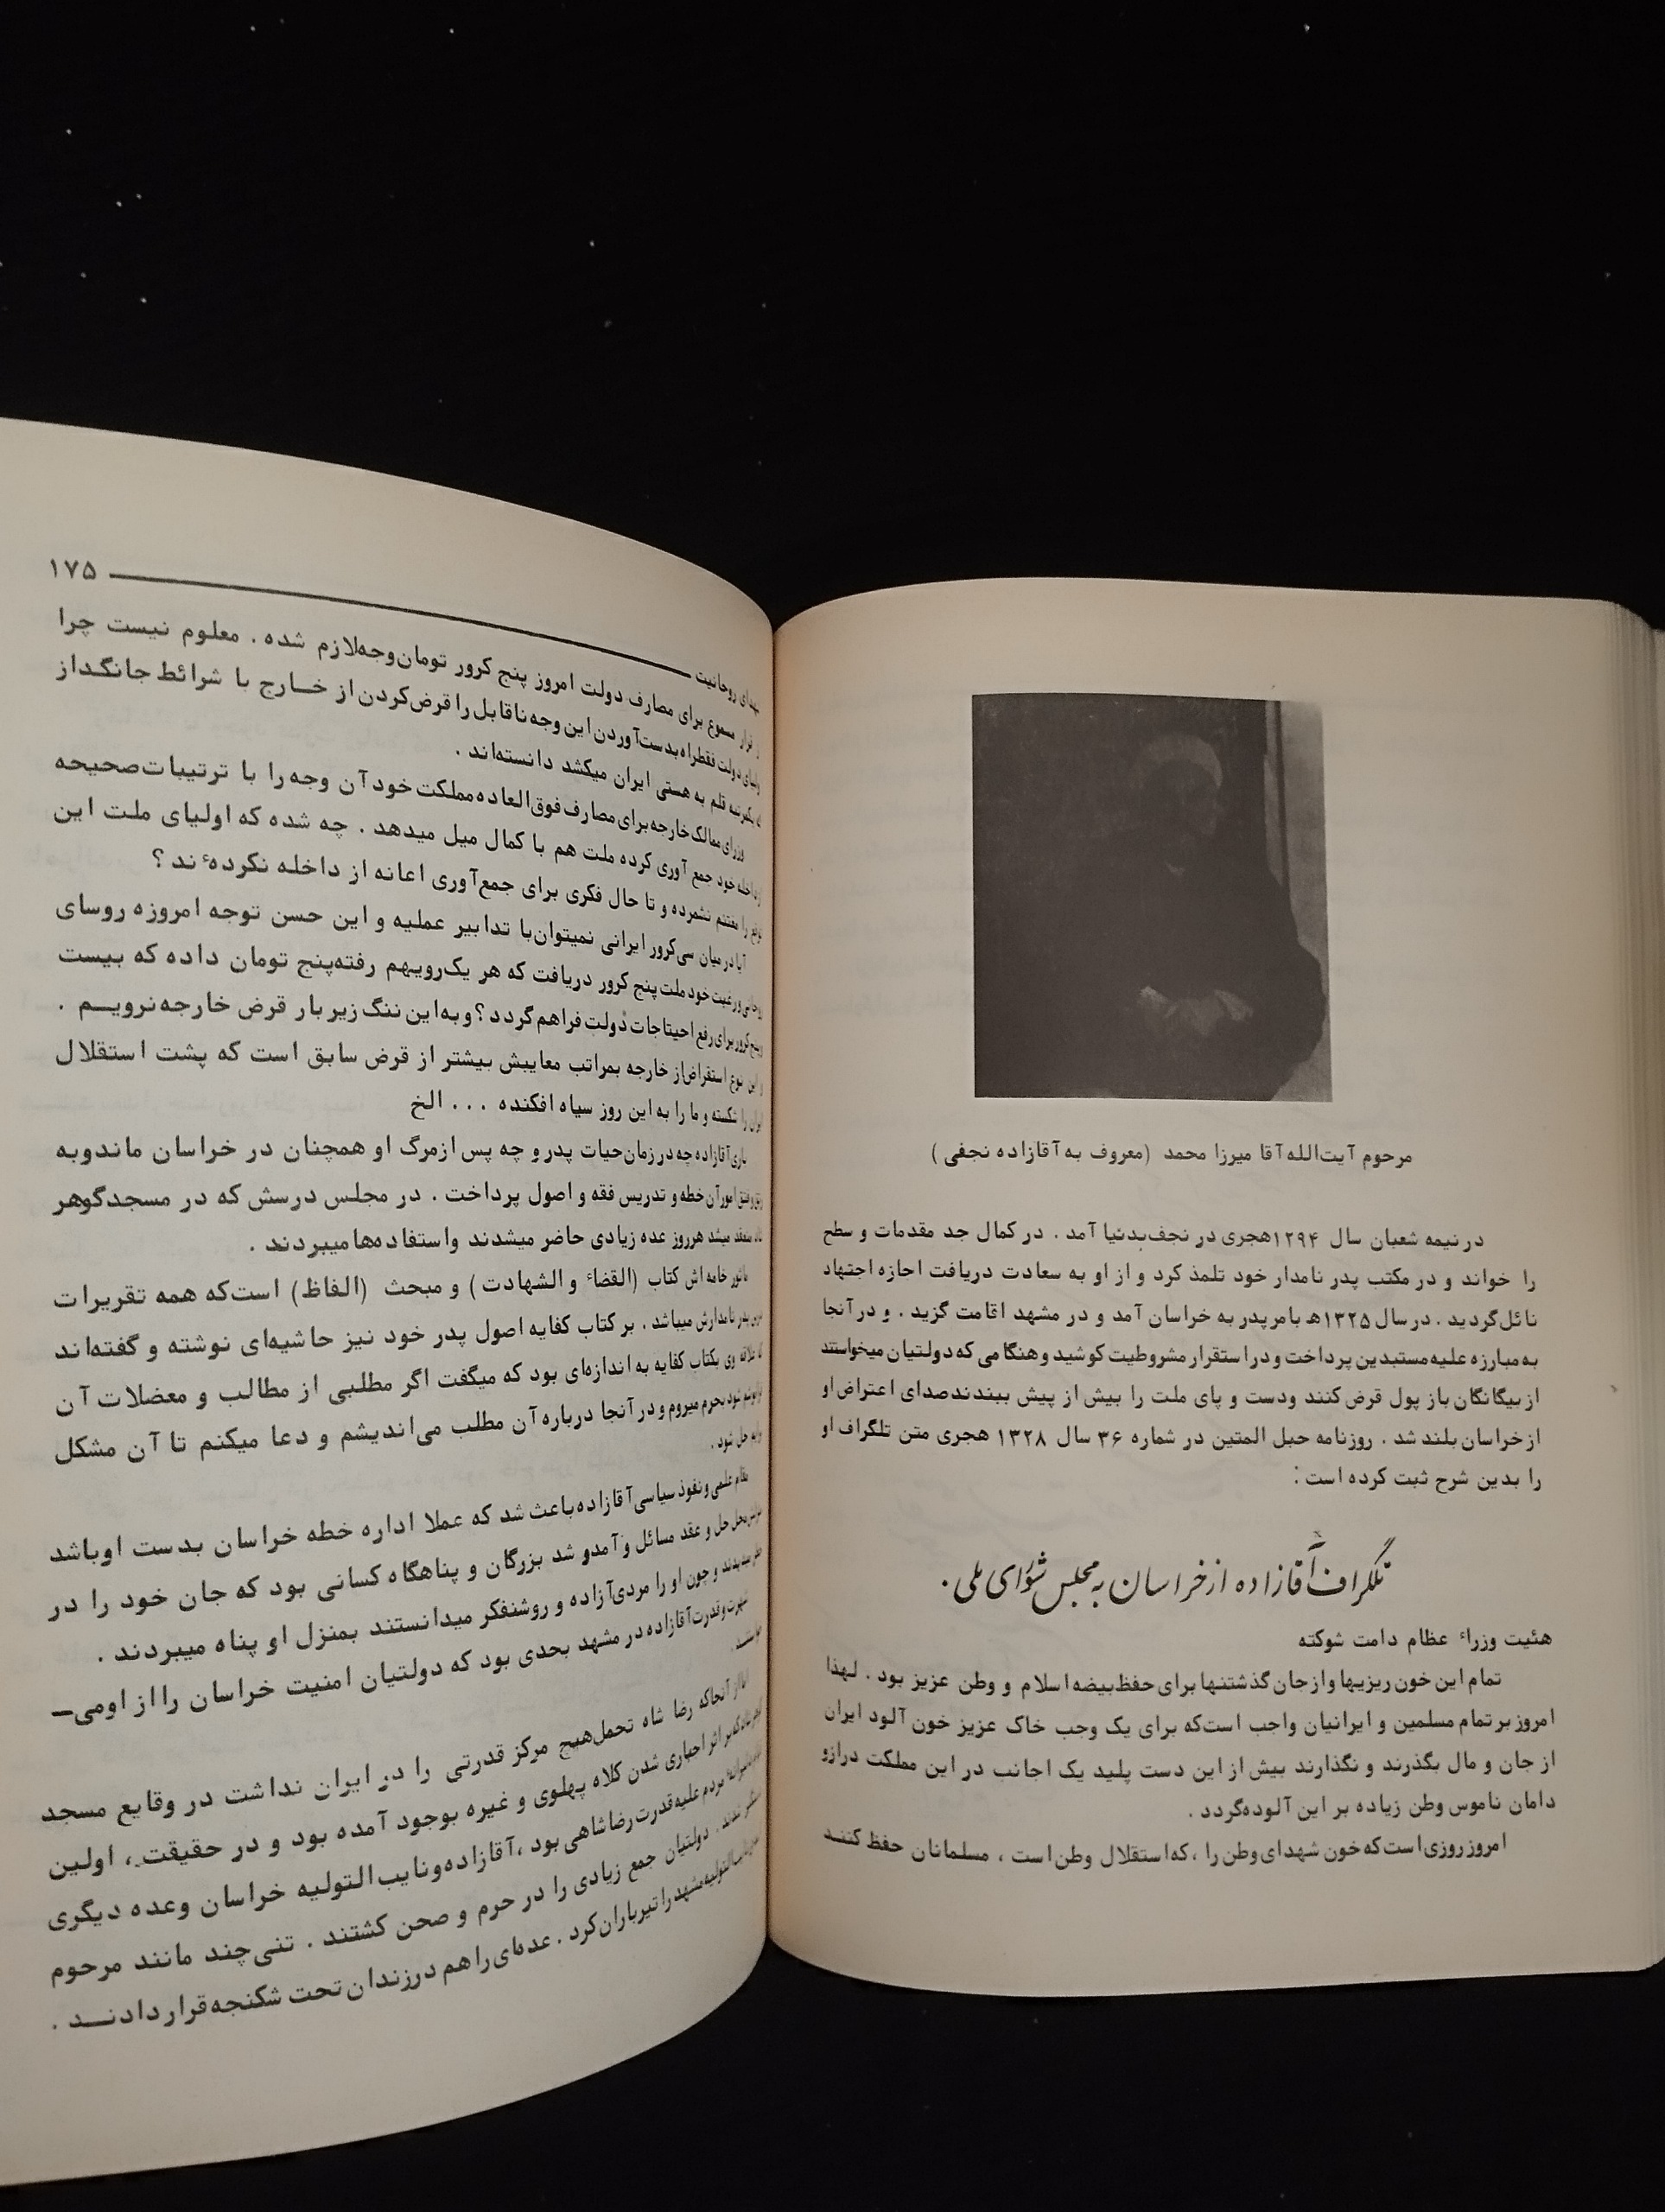 مرحوم آیت‌الله آقا میرزا محمد (معروف به آقازاده نجفی)
در نیمه شعبان سال ۱۲۹۴هجری در نجف‌بدنیا آمد . در کمال جد مقدمات و سطح
را خواند و در مکتب پدر نامدار خود تلمذ کرد و از او به سعادت دریافت اجازه اجتهاد
نائل‌گردید . درسال ۱۳۲۵ه‍ بامرپدر به خراسان آمد و در مشهد اقامت گزید . و درآنجا
به‌مبارزه علیه‌مستبدین پرداخت و دراستقرار مشروطیت کوشید و هنگامی که دولتیان میخواستند
از بیگانگان باز پول قرض‌کنند ودست و پای ملت را بیش از پیش ببندند صدای اعتراض او
از خراسان بلند شد . روزنامه حبل المتین در شماره ۳۶ سال ۱۳۲۸ هجری متن تلگراف او
را بدین شرح ثبت کرده است :
تلگراف آقازاده از خراسان به مجلس شورای ملی .
هئیت وزراء عظام دامت شوکته
تمام این خون ریزیها و از جان گذشتنها برای حفظ بیضه اسلام و وطن عزیز بود . لهذا
امروز بر تمام مسلمین و ایرانیان واجب است‌که برای یک وجب خاک عزیز خون آلود ایران
از جان و مال بگذرند و نگذارند بیش از این دست پلید یک اجانب در این مملکت درازو
دامان ناموس وطن زیاده بر این آلوده‌گردد .
امروز روزی است‌که خون شهدای وطن را ، که استقلال وطن است ، مسلمانان حفظ کنند
روحانیت ۱۷۵
مسموع برای مصارف دولت امروز پنج کرور تومان‌وجه‌لازم شده . معلوم نیست چرا
دولت فقط‌راه‌بدست‌آوردن این وجه‌ناقابل را قرض‌کردن از خـارج با شرائط جانگـداز
قلم به هستی ایران میکشد دانسته‌اند .
وزرای ممالک‌خارجه برای مصارف فوق‌العاده مملکت خود آن وجه را با ترتیبات‌صحیحه
خود جمع آوری کرده ملت هم با کمال میل میدهد . چه شده که اولیای ملت این
را مغتنم نشمرده و تا حال فکری برای جمع‌آوری اعانه از داخله نکردهٔ‌ند ؟
آیا در میان سی‌کرور ایرانی نمیتوان‌با تدابیر عملیه و این حسن توجه امروزه روسای
خود ملت پنج کرور دریافت که هر یک‌رویهم رفته‌پنج تومان داده که بیست
کرور برای رفع احتیاجات دولت فراهم‌گردد ؟ و به‌این ننگ زیر بار قرض خارجه‌نرویـم .
این نوع استقراض‌از خارجه بمراتب معایبش بیشتر از قرض سابق است که پشت استقلال
را شکسته و ما را به این روز سیاه افکنده . . . الخ
باری‌آقازاده چه در زمان‌حیات پدر و چه پس ازمرگ او همچنان در خراسان ماندوبه
امور آن خطه و تدریس فقه و اصول پرداخت . در مجلس درسش که در مسجدگوهر
منعقد میشد هرروز عده زیادی حاضر میشدند واستفاده‌هامیبردند .
خامه‌اش کتاب (القضاء و الشهادت) و مبحث (الفاظ) است‌که همه تقریرات
پدر نامدارش میباشد . بر کتاب کفایه اصول پدر خود نیز حاشیه‌ای نوشته و گفته‌اند
علاقه وی بکتاب کفایه به اندازه‌ای بود که میگفت اگر مطلبی از مطالب و معضلات آن
شود بحرم میروم و در آنجا درباره آن مطلب می‌اندیشم و دعا میکنم تا آن مشکل
حل شود .
مقام علمی و نفوذ سیاسی آقازاده‌باعث شد که عملا اداره خطه خراسان بدست اوباشد
محل حل و عقد مسائل و آمدو شد بزرگان و پناهگاه کسانی بود که جان خود را در
و چون او را مردی‌آزاده و روشنفکر میدانستند بمنزل او پناه میبردند .
شهرت و قدرت آقازاده در مشهد بحدی بود که دولتیان امنیت خراسان را از اومی‌ـ
از آنجاکه رضا شاه تحمل‌هیچ مرکز قدرتی را در ایران نداشت در وقایع مسجد
بر اثر اجباری شدن کلاه پهلوی و غیره بوجود آمده بود و در حقیقت ، اولین
مردم علیه قدرت رضاشاهی بود ، آقازاده‌ونایب التولیه خراسان وعده دیگری
دولتیان جمع زیادی را در حرم و صحن کشتند . تنی‌چند مانند مرحوم
مشهد را تیرباران‌کرد . عده‌ای‌راهم درزندان تحت شکنجه‌قرار دادنــد .